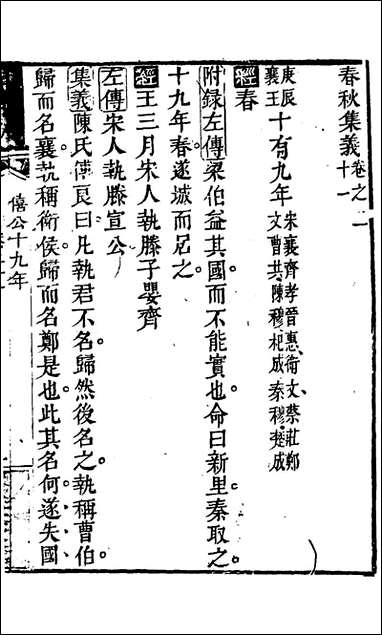 春秋集義卷之二十一
庚辰襄王十有九年宋襄齊孝晉惠衛文蔡莊鄭文曹共陳穆杞成秦穆楚成
經春
附録左傳梁伯益其國而不能實也命曰新里秦取之
十九年春遂城而居之
經王三月宋人執滕子嬰齊
左傳宋人執滕宣公
集義陳氏傅良曰凡執君不名歸然後名之執稱曹伯
歸而名襄執稱衛侯歸而名鄭是也此其名何遂失國
僖公十九年